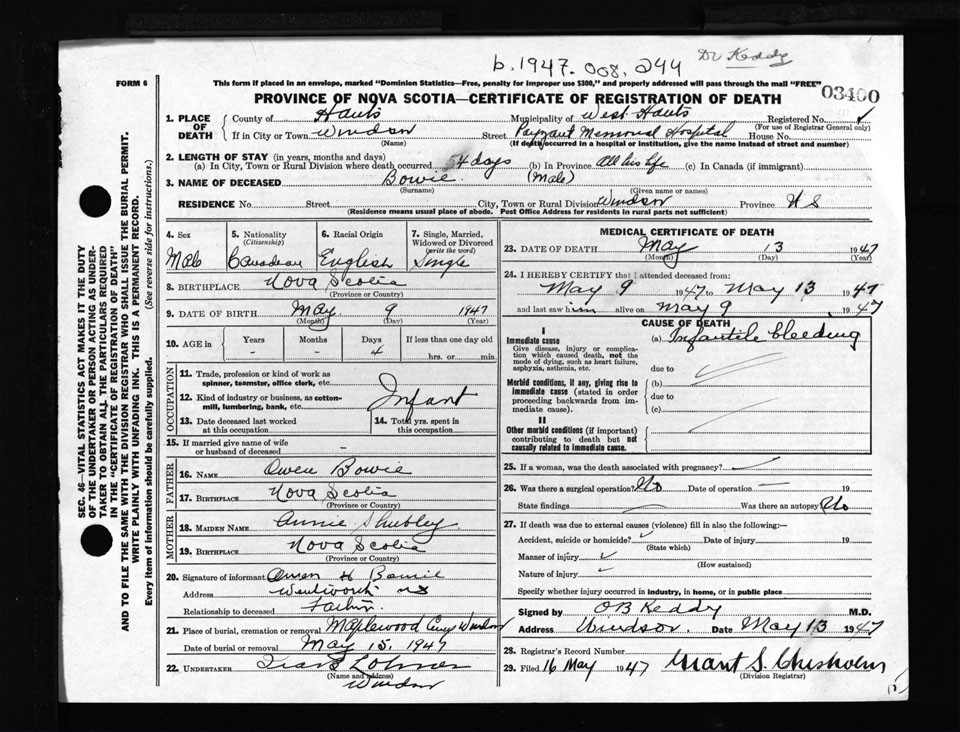 Dr Keddy
b. 1947. 008. 244
FORM 6
This form if placed in an envelope, marked "Dominion Statistics—Free, penalty for improper use $300," and properly addressed will pass through the mail "FREE"
03400
PROVINCE OF NOVA SCOTIA—CERTIFICATE OF REGISTRATION OF DEATH
1. PLACE OF DEATH
County of Hants Municipality of West Hants Registered No.
(For use of Registrar General only)
If in City or Town Windsor Street Payzant Memorial Hospital House No.
(Name) (If death occurred in a hospital or institution, give the name instead of street and number)
2. LENGTH OF STAY (in years, months and days)
(a) In City, Town or Rural Division where death occurred 4 days (b) In Province All his life (c) In Canada (if immigrant)
3. NAME OF DECEASED Bowie. (Male)
(Surname) (Given name or names)
RESIDENCE No. Street City, Town or Rural Division Windsor Province N S
(Residence means usual place of abode. Post Office Address for residents in rural parts not sufficient)
4. Sex Male
5. Nationality (Citizenship) Canadian
6. Racial Origin English
7. Single, Married, Widowed or Divorced (write the word) Single
8. BIRTHPLACE Nova Scotia
(Province or Country)
9. DATE OF BIRTH May 9 1947
(Month) (Day) (Year)
10. AGE in Years - Months - Days 4 If less than one day old hrs. or min.
OCCUPATION
11. Trade, profession or kind of work as spinner, teamster, office clerk, etc.
12. Kind of industry or business, as cotton-mill, lumbering, bank, etc.
Infant
13. Date deceased last worked at this occupation
14. Total yrs. spent in this occupation
15. If married give name of wife or husband of deceased -
FATHER
16. NAME Owen Bowie
17. BIRTHPLACE Nova Scotia
(Province or Country)
MOTHER
18. MAIDEN NAME Annie
19. BIRTHPLACE Nova Scotia
(Province or Country)
20. Signature of informant Owen H Bowie
Address Wentworth NS
Relationship to deceased Father
21. Place of burial, cremation or removal Maplewood Cemy Windsor
Date of burial or removal May 15, 1947
22. UNDERTAKER
(Name and address)
Windsor
MEDICAL CERTIFICATE OF DEATH
23. DATE OF DEATH May 13 1947
(Month) (Day) (Year)
24. I HEREBY CERTIFY that I attended deceased from:
May 9 1947 to May 13 1947
and last saw him alive on May 9 1947
CAUSE OF DEATH
I
Immediate cause (a) Infantile bleeding
Give disease, injury or complication which caused death, not the mode of dying, such as heart failure, asphyxia, asthenia, etc.
due to
Morbid conditions, if any, giving rise to immediate cause (stated in order proceeding backwards from immediate cause).
(b)
due to
(c)
II
Other morbid conditions (if important) contributing to death but not causally related to immediate cause.
25. If a woman, was the death associated with pregnancy?
26. Was there a surgical operation? No Date of operation — 19
State findings Was there an autopsy? No
27. If death was due to external causes (violence) fill in also the following:—
Accident, suicide or homicide? Date of injury 19
(State which)
Manner of injury
(How sustained)
Nature of injury
Specify whether injury occurred in industry, in home, or in public place
Signed by O B Keddy M.D.
Address Windsor. Date May 13 1947
28. Registrar's Record Number
29. Filed 16 May 1947 Grant S. Chisholm
(Division Registrar)
SEC. 46—VITAL STATISTICS ACT MAKES IT THE DUTY
OF THE UNDERTAKER OR PERSON ACTING AS UNDER-
TAKER TO OBTAIN ALL THE PARTICULARS REQUIRED
IN THE "CERTIFICATE OF REGISTRATION OF DEATH"
AND TO FILE THE SAME WITH THE DIVISION REGISTRAR WHO SHALL ISSUE THE BURIAL PERMIT.
WRITE PLAINLY WITH UNFADING INK. THIS IS A PERMANENT RECORD.
Every item of information should be carefully supplied. (See reverse side for instructions.)